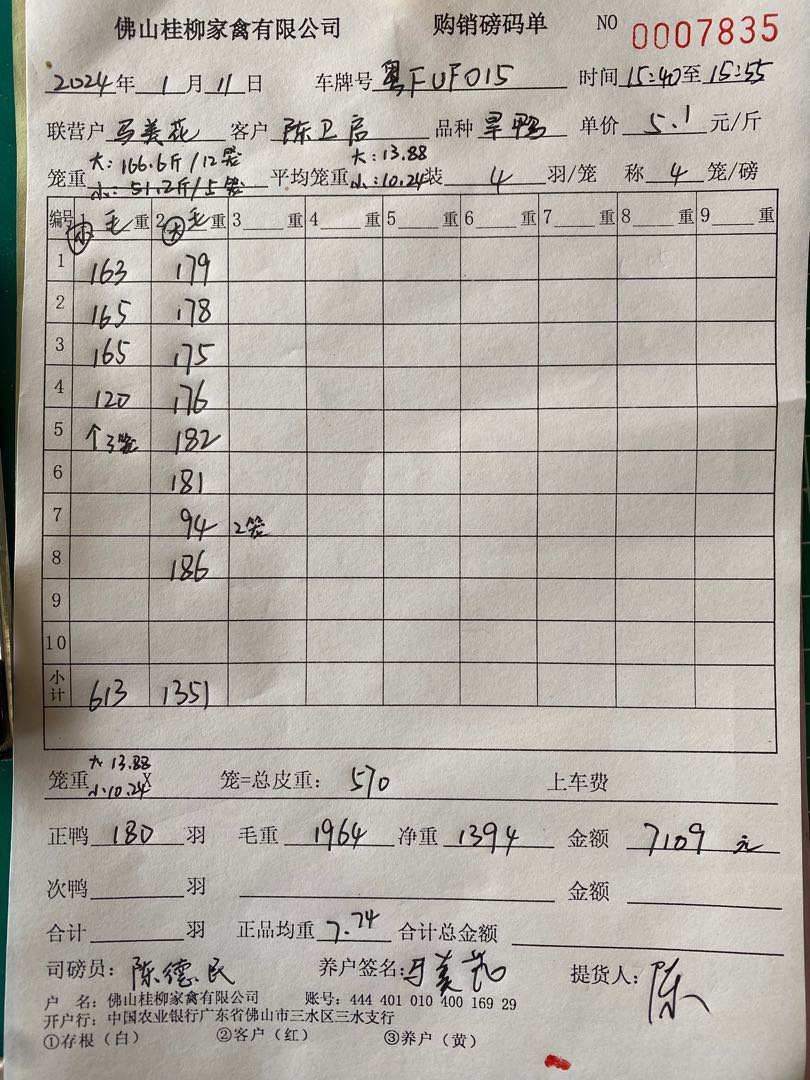 佛山桂柳家禽有限公司 购销磅码单 NO 0007835
2024年 1月 11日 车牌号 粤FUF015 时间 15:40至 15:55
联营户 马美花 客户 陈卫启 品种 旱鸭 单价 5.1 元/斤
大:166.6斤/12笼 大:13.88
笼重 小:51.2斤/5笼 平均笼重 小:10.24 装 4 羽/笼 称 4 笼/磅
编号 1 毛 重 2 毛 重 3 重 4 重 5 重 6 重 7 重 8 重 9 重
小 大
1 163 179
2 165 178
3 165 175
4 120 176
5 ↑3笼 182
6 181
7 94 2笼
8 186
9
10
小计 613 1351
大 13.88
笼重 小:10.24 X 笼=总皮重: 570 上车费
正鸭 180 羽 毛重 1964 净重 1394 金额 7109 元
次鸭 羽 金额
合计 羽 正品均重 7.74 合计总金额
司磅员: 陈德民 养户签名: 马美花 提货人: 陈
户 名: 佛山桂柳家禽有限公司 账号: 444 401 010 400 169 29
开户行: 中国农业银行广东省佛山市三水区三水支行
①存根(白) ②客户(红) ③养户(黄)